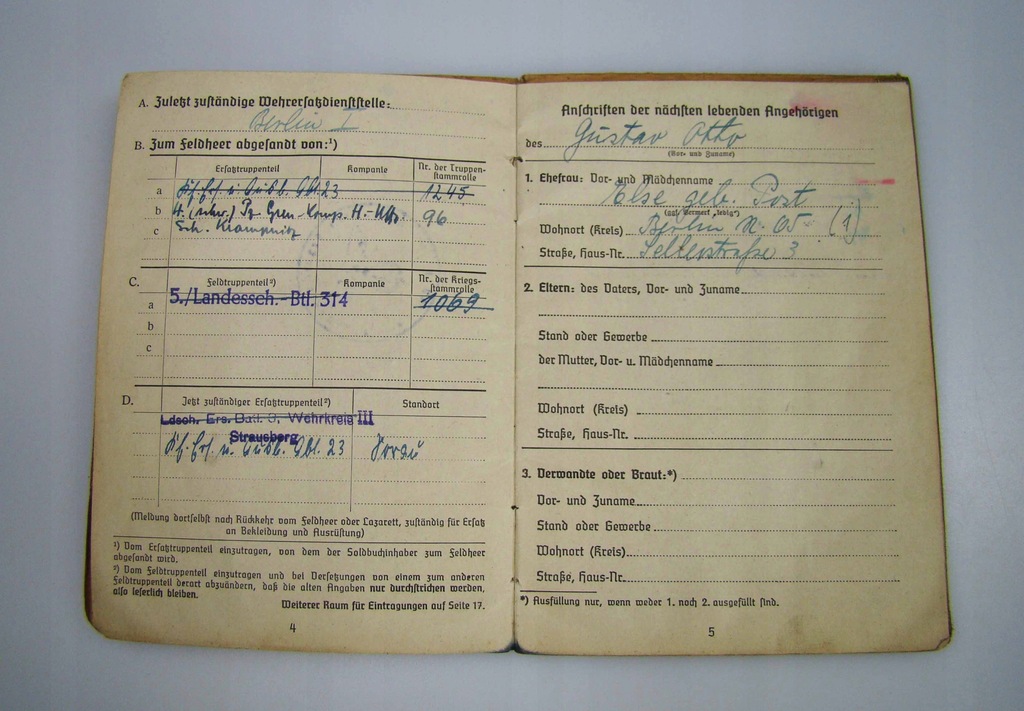 A. Zuletzt zuständige Wehrersatzdienststelle:
Berlin I
B. Zum Feldheer abgesandt von:¹)
Ersatztruppenteil Kompanie Nr. der Truppenstammrolle
a Kf. Ers. u. Ausb. Abt. 23 1245
b 4. (schw.) Pz. Gren.-Komp. 96
c Sch. Krampnitz
C. Feldtruppenteil²) Kompanie Nr. der Kriegsstammrolle
a 5./Landessch.-Btl. 314 1069
b
c
D. Jetzt zuständiger Ersatztruppenteil²) Standort
Ldsch. Ers. Batl. 3, Wehrkreis III
Strausberg
Kf. Ers. u. Ausb. Abt. 23 Sorau
(Meldung dortselbst nach Rückkehr vom Feldheer oder Lazarett, zuständig für Ersatz
an Bekleidung und Ausrüstung)
¹) Vom Ersatztruppenteil einzutragen, von dem der Soldbuchinhaber zum Feldheer
abgesandt wird.
²) Vom Feldtruppenteil einzutragen und bei Versetzungen von einem zum anderen
Feldtruppenteil derart abzuändern, daß die alten Angaben nur durchstrichen werden,
also leserlich bleiben.
Weiterer Raum für Eintragungen auf Seite 17.
4
Anschriften der nächsten lebenden Angehörigen
des Gustav Otto
(Vor- und Zuname)
1. Ehefrau: Vor- und Mädchenname
Else geb. Post
(ggf. Vermerk „ledig“)
Wohnort (Kreis) Berlin N. 65 (1)
Straße, Haus-Nr. Sellerstraße 3
2. Eltern: des Vaters, Vor- und Zuname
Stand oder Gewerbe
der Mutter, Vor- u. Mädchenname
Wohnort (Kreis)
Straße, Haus-Nr.
3. Verwandte oder Braut:*)
Vor- und Zuname
Stand oder Gewerbe
Wohnort (Kreis)
Straße, Haus-Nr.
*) Ausfüllung nur, wenn weder 1. noch 2. ausgefüllt sind.
5